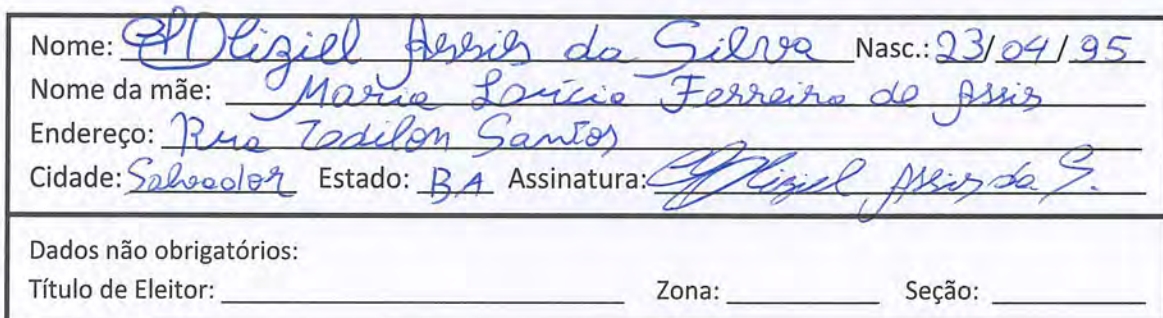 Nome: Eliziel Assis da Silva Nasc.: 23/04/95
Nome da mãe: Maria Lúcia Ferreira de Assis
Endereço: Rua Santos
Cidade: Salvador Estado: BA Assinatura: Eliziel Assis da S.
Dados não obrigatórios:
Título de Eleitor: Zona: Seção: